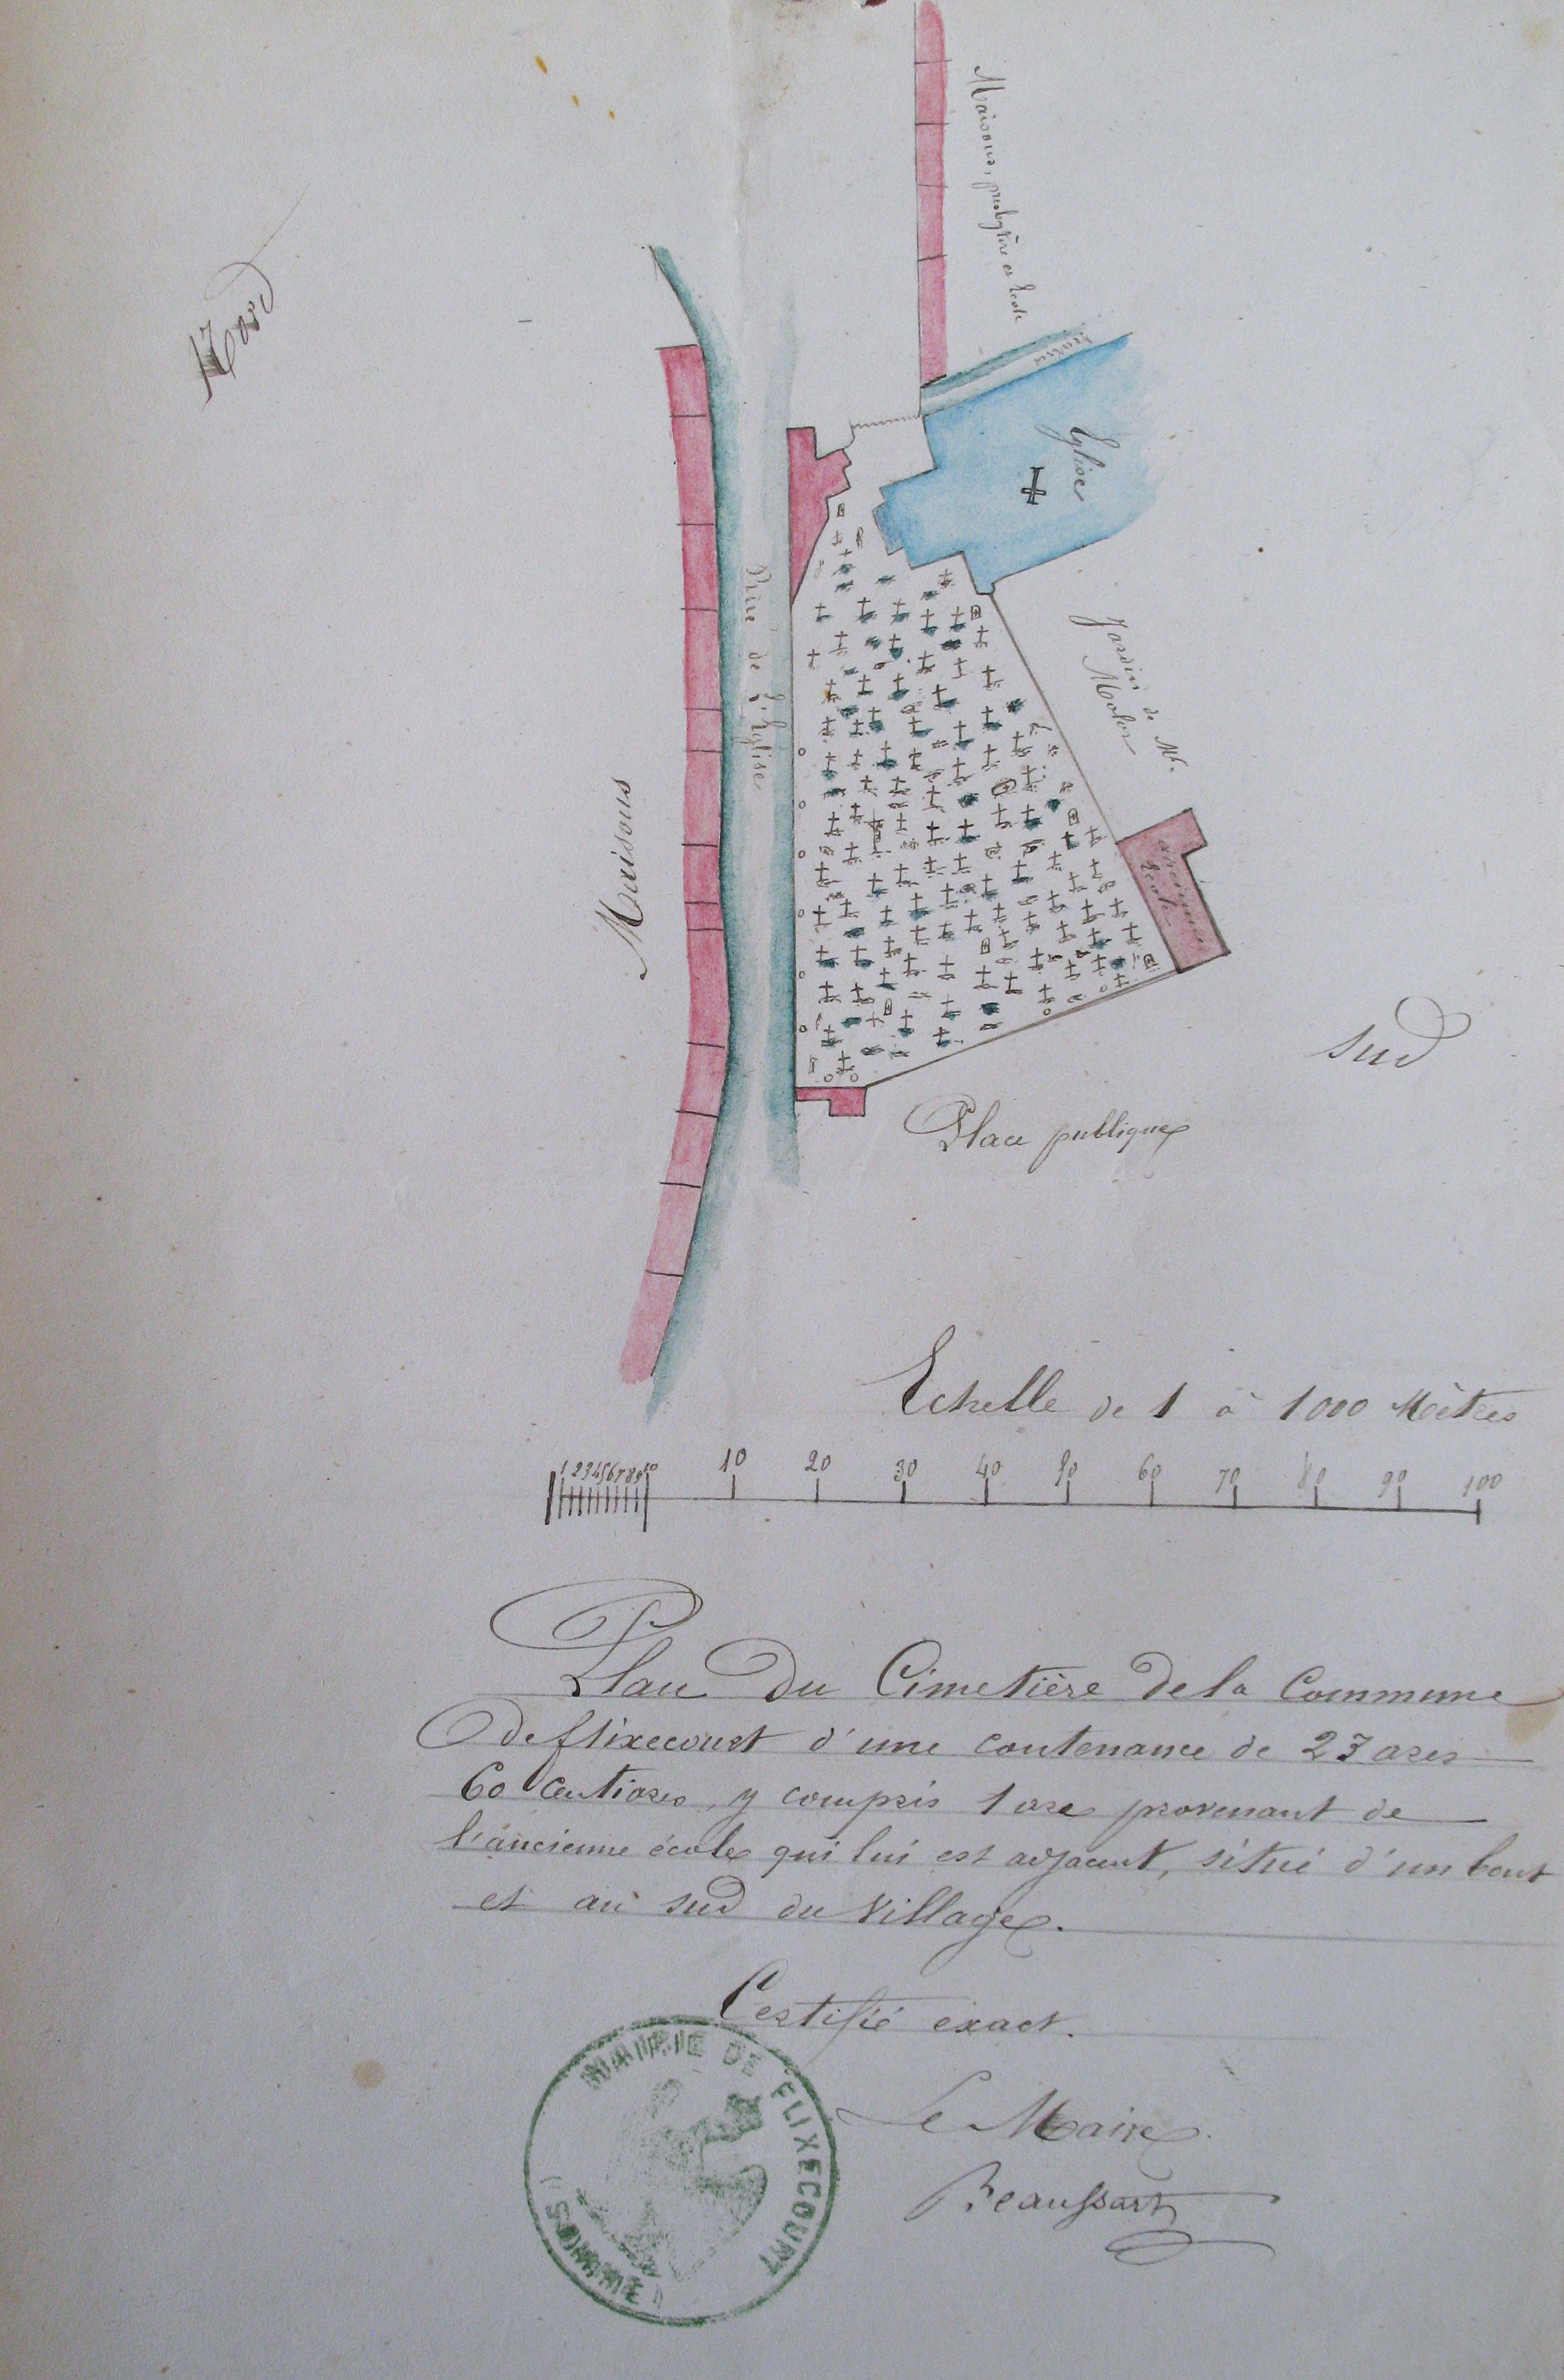 Maisons, presbytère et École
Nord
Église
Rue de l'Église
Jardin de Mr.
Maisons
ancienne
École
Sud
Place publique
Echelle de 1 à 1000 Mètres
1 2 3 4 5 6 7 8 9 10 10 20 30 40 50 60 70 80 90 100
Plan Du Cimetière de la Commune
de flixecourt d'une contenance de 23 ares
60 Centiares, y compris 1 are provenant de
l'ancienne école qui lui est adjacent, situé d'un bout
et au sud du Village.
Certifié exact.
MAIRIE DE FLIXECOURT
(SOMME)
Le Maire
Beaussart